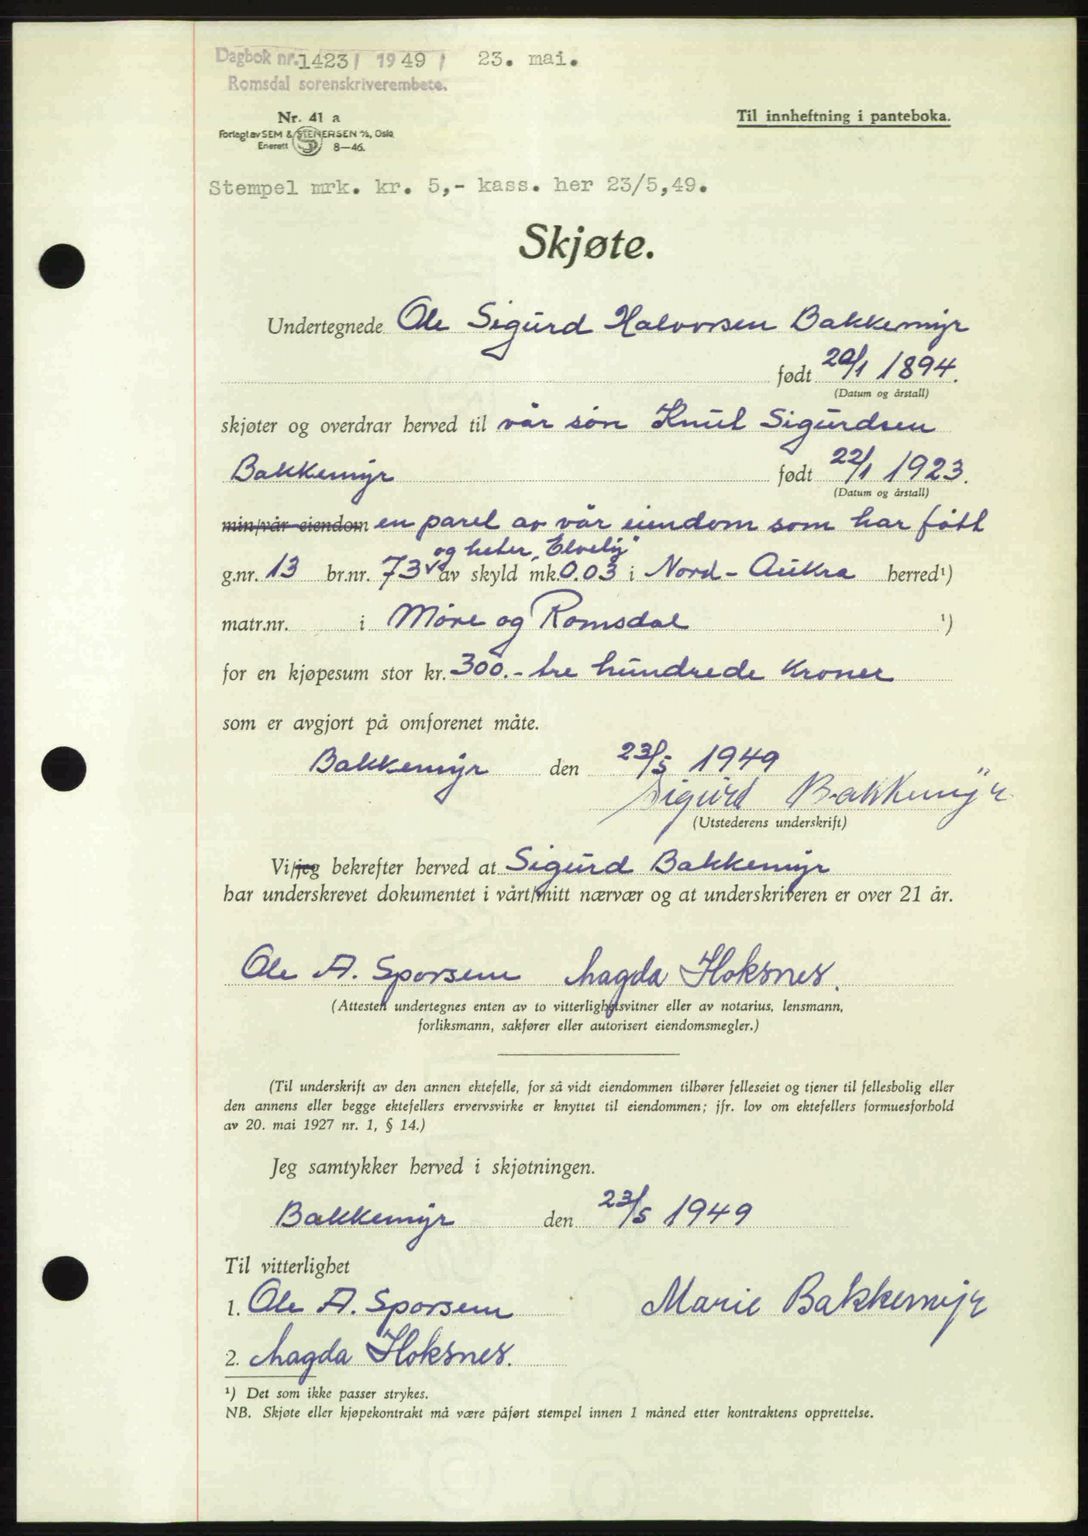 Dagbok nr. 1423 / 1949 / 23. mai.
Romsdal sorenskriverembete.
Nr. 41 a
Til innheftning i panteboka.
Forlagt av SEM & STENERSEN A/S, Oslo
Enerett 8—46.
Stempel mrk. kr. 5,- kass. her 23/5,49.
Skjøte.
Undertegnede Ole Sigurd Halvorsen Bakkemyr
født 20/1 1894.
(Datum og årstall)
skjøter og overdrar herved til vår søn Knut Sigurdsen
Bakkemyr født 22/1 1923.
(Datum og årstall)
min/vår eiendom en parsel av vår eiendom som har fått
og heter „Elvely"
g.nr. 13 br.nr. 73 av skyld mk. 0.03 i Nord-Aukra herred¹)
matr.nr. i Møre og Romsdal ¹)
for en kjøpesum stor kr. 300.- tre hundrede kroner
som er avgjort på omforenet måte.
Bakkemyr den 23/5 1949
Sigurd Bakkemyr
(Utstederens underskrift)
Vi/jeg bekrefter herved at Sigurd Bakkemyr
har underskrevet dokumentet i vårt/mitt nærvær og at underskriveren er over 21 år.
Ole A. Sporsem Magda Hoksnes.
(Attesten undertegnes enten av to vitterlighetsvitner eller av notarius, lensmann,
forliksmann, sakfører eller autorisert eiendomsmegler.)
(Til underskrift av den annen ektefelle, for så vidt eiendommen tilhører felleseiet og tjener til fellesbolig eller
den annens eller begge ektefellers ervervsvirke er knyttet til eiendommen; jfr. lov om ektefellers formuesforhold
av 20. mai 1927 nr. 1, § 14.)
Jeg samtykker herved i skjøtningen.
Bakkemyr den 23/5 1949
Til vitterlighet
1. Ole A. Sporsem Marie Bakkemyr
2. Magda Hoksnes.
¹) Det som ikke passer strykes.
NB. Skjøte eller kjøpekontrakt må være påført stempel innen 1 måned etter kontraktens opprettelse.